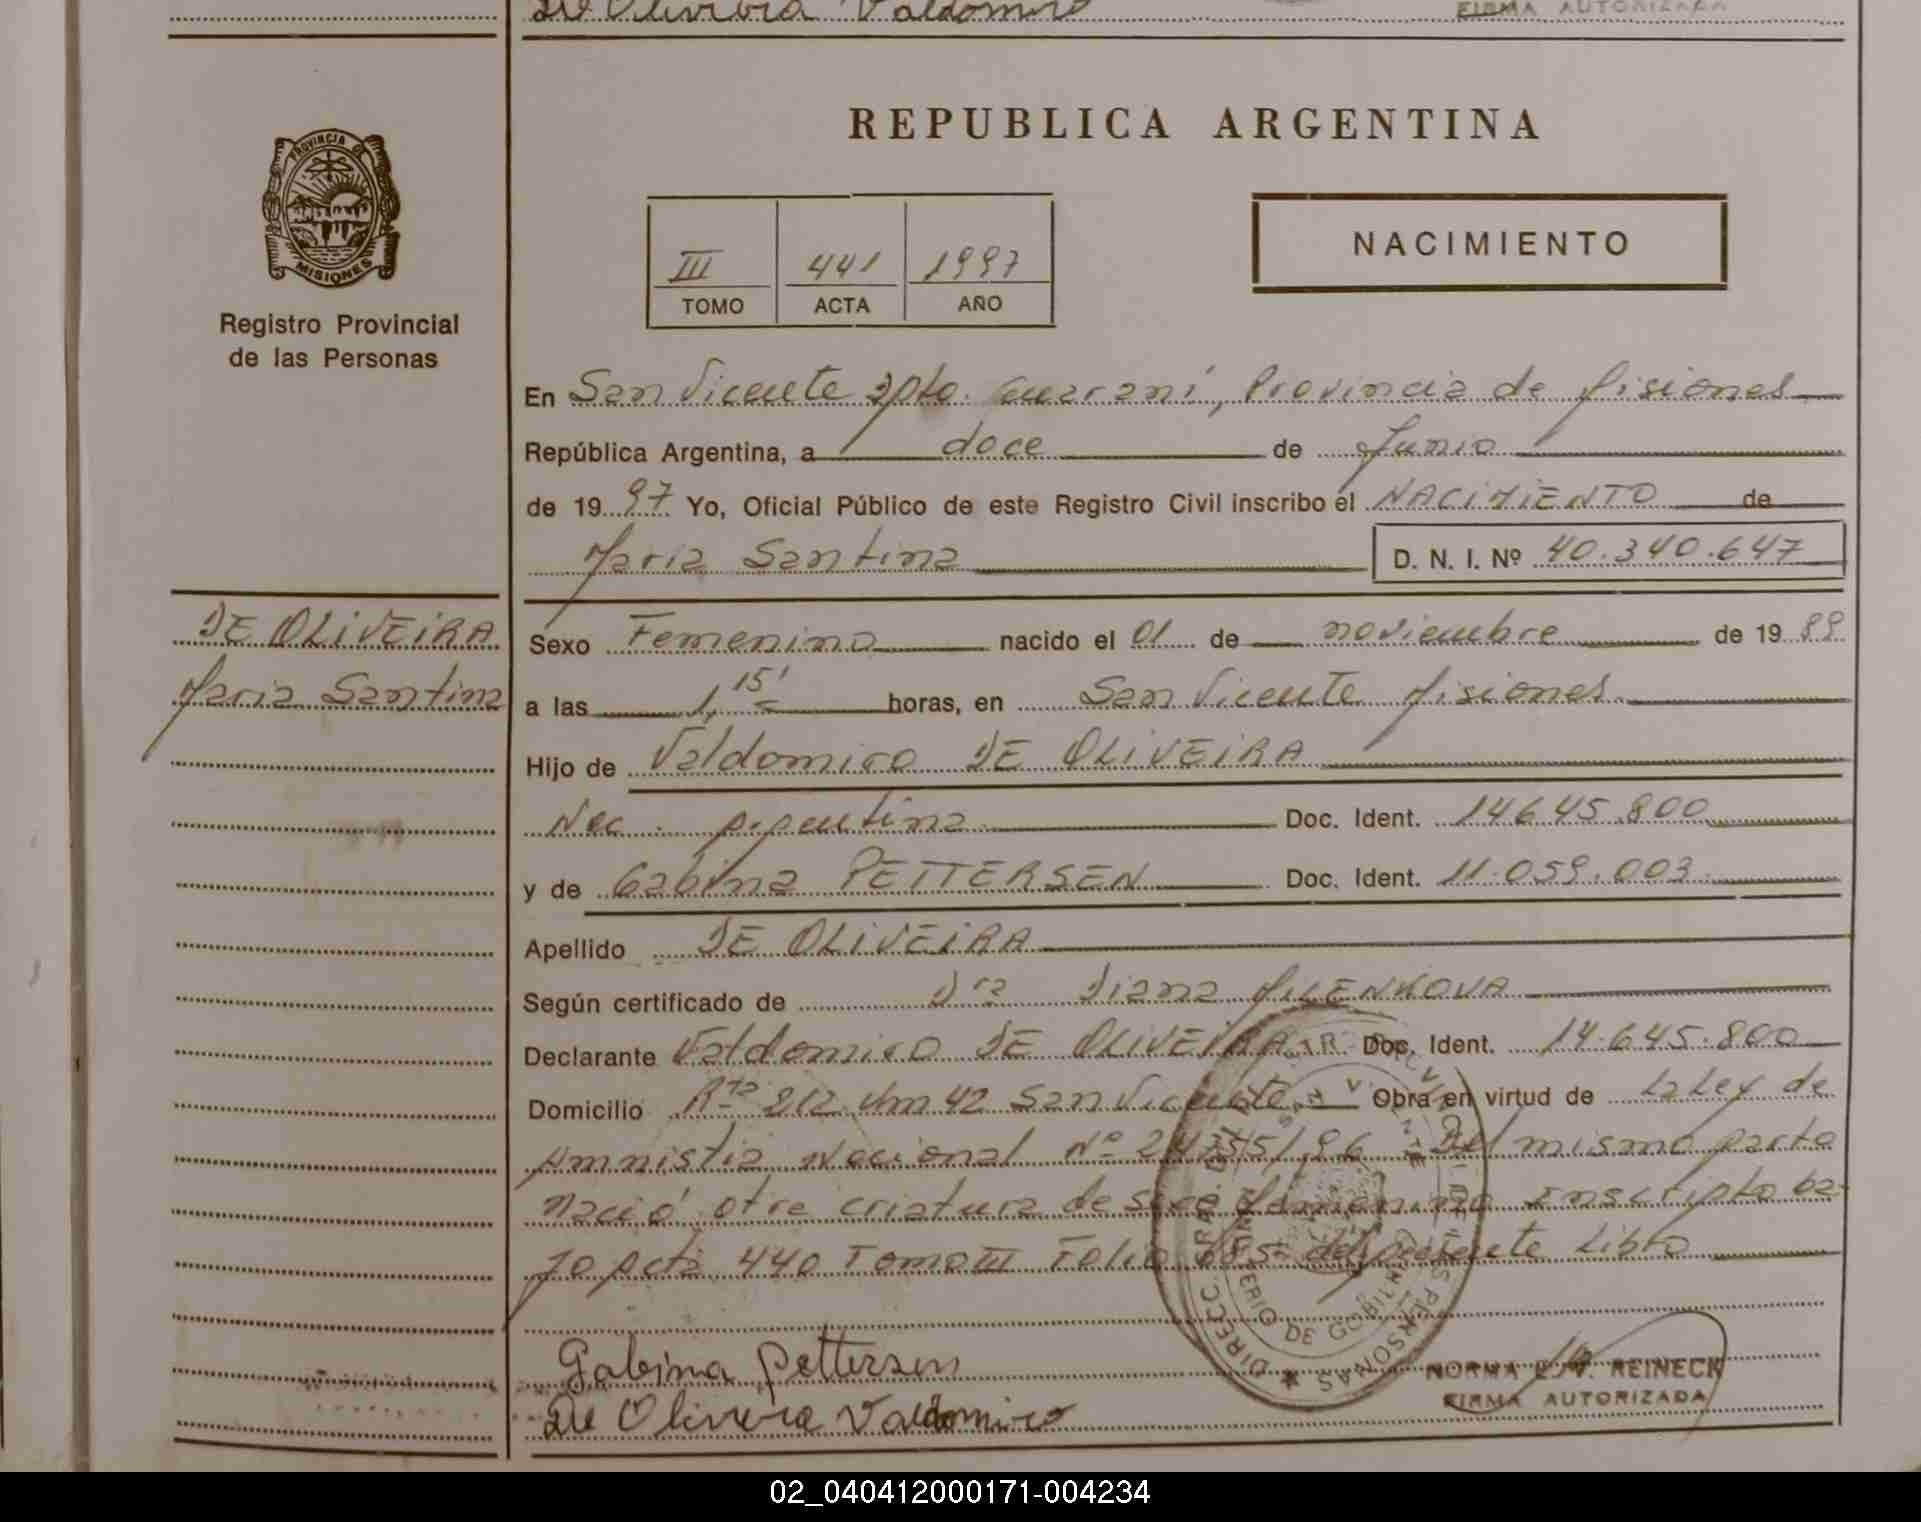 De Oliveira Valdomiro
FIRMA AUTORIZADA
PROVINCIA DE
MISIONES
Registro Provincial
de las Personas
REPUBLICA ARGENTINA
III 441 1997
TOMO ACTA AÑO
NACIMIENTO
En San Vicente Dpto. Guaraní, Provincia de Misiones
República Argentina, a doce de Junio
de 1997 Yo, Oficial Público de este Registro Civil inscribo el NACIMIENTO de
Maria Santina D. N. I. Nº 40.340.647
DE OLIVEIRA
Maria Santina
Sexo Femenino nacido el 01 de noviembre de 1989
a las 1,15' horas, en San Vicente Misiones
Hijo de Valdomiro DE OLIVEIRA
Nac. Argentina Doc. Ident. 14645.800
y de Gabina PETTERSEN Doc. Ident. 11.059.003
Apellido DE OLIVEIRA
Según certificado de Dra Diana MILENKOVA
Declarante Valdomiro DE OLIVEIRA Doc. Ident. 14.645.800
Domicilio Rta 212 Km 42 San Vicente Obra en virtud de La Ley de
Amnistia Nacional Nº 24755/96 Del mismo parto
Nació otra criatura de sexo femenino Inscripta ba-
jo Acta 440 Tomo III Folio 685 del presente Libro
Gabina Pettersen
De Oliveira Valdomiro
NORMA REINECK
FIRMA AUTORIZADA
02_040412000171-004234